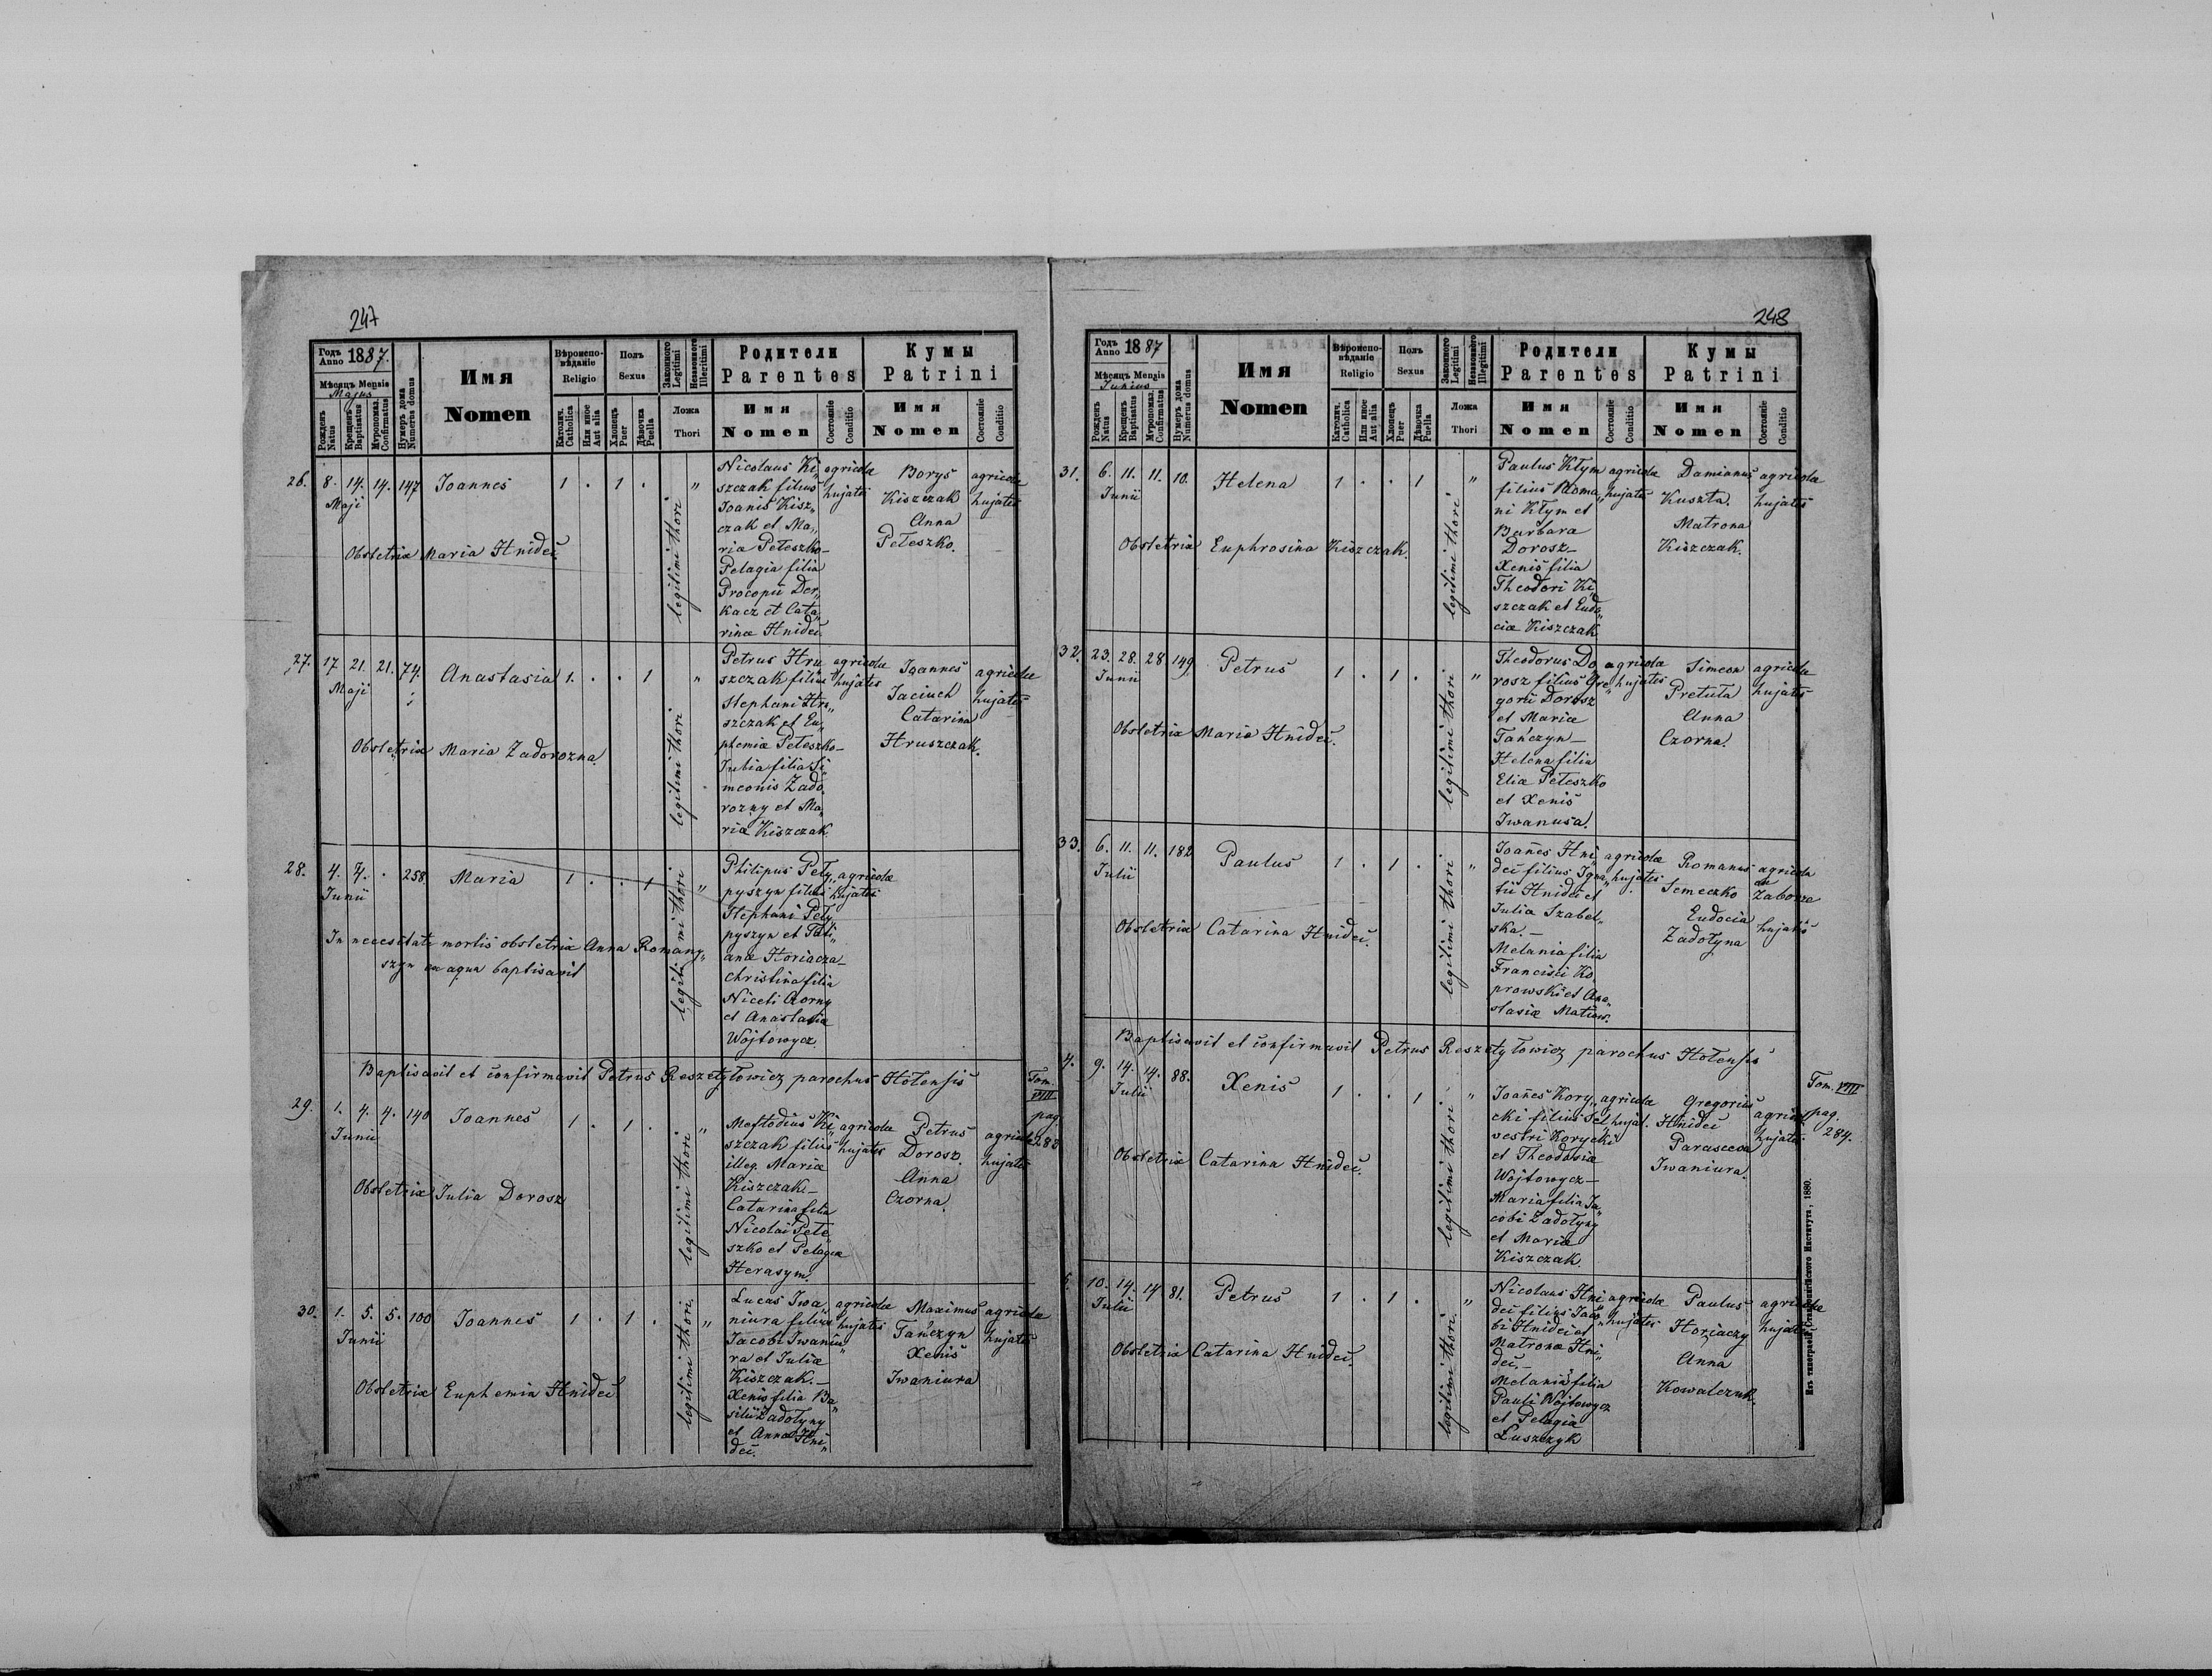 247
Годъ Anno 1887.
Мѣсяцъ Mensis
Majus
Рожденъ Natus
Крещенъ Baptisatus
Мѵропомаз. Confirmatus
Нумеръ дома Numerus domus
Имя
Nomen
Вѣроисповѣданіе
Religio
Католич. Catholica
Или иное Aut alia
Полъ
Sexus
Хлопецъ Puer
Дѣвочка Puella
Законного Legitimi
Незаконного Illegitimi
Ложа
Thori
Родители
Parentes
Имя
Nomen
Состояніе Conditio
Кумы
Patrini
Имя
Nomen
Состояніе Conditio
26. 8. 14. 14. 147 Joannes 1 . 1 . "
Maji
Obstetrix Maria Hnidei
legitimi thori
Nicolaus Ki„
szczak filius
Joanis Kisz„
czak et Ma„
ria Peteszko—
Pelagia filia
Procopii Der„
kacz et Cata„
rinae Hnidei
agricolae
hujates
Borys
Kiszczak
Anna
Peteszko.
agricolae
hujates
27. 17 21. 21. 74. Anastasia 1. . . 1 "
Maji
Obstetrix Maria Zadorozna.
legitimi thori
Petrus Hru„
szczak filius
Stephani Hru„
szczak et Eu„
phemiae Peteszko—
Julia filia Si„
meonis Zado„
rozny et Ma„
riae Kiszczak
agricolae
hujates
Joannes
Jaciuch
Catarina
Hruszczak.
agricolae
hujates
28. 4. 4. . 258. Maria 1 . . 1 "
Junii
In necesitate mortis obstetrix Anna Romany„
szyn ex aqua baptisavit
legitimi thori
Philipus Pety„
pyszyn filius
Stephani Pety„
pyszyn et Tati„
anae Horiacza—
Christina filia
Niceti Czorny
et Anastasiae
Wojtowycz.
agricolae
hujates
Baptisavit et confirmavit Petrus Reszetylowicz parochus Holensis
Tom.
VIII
pag.
283
29. 1. 4. 4. 140 Joannes 1 . 1 . "
Junii
Obstetrix Julia Dorosz
legitimi thori
Meftodius Ki„
szczak filius
illeg. Mariae
Kiszczak—
Catarina filia
Nicolai Pete„
szko et Pelagiae
Herasym.
agricolae
hujates
Petrus
Dorosz.
Anna
Czorna.
agricolae
hujates
30. 1. 5. 5. 100 Joannes 1 . 1 . "
Junii
Obstetrix Euphemia Hnidei
legitimi thori.
Lucas Iwa„
niura filius
Jacobi Iwaniu„
ra et Juliae
Kiszczak.—
Xenis filia Ba„
silii Zadolyny
et Annae Hni„
dei.
agricolae
hujates
Maximus
Tańczyn
Xenis
Iwaniura
agricolae
hujates
248
Годъ Anno 1887
Мѣсяцъ Mensis
Junius
Рожденъ Natus
Крещенъ Baptisatus
Мѵропомаз. Confirmatus
Нумеръ дома Numerus domus
Имя
Nomen
Вѣроисповѣданіе
Religio
Католич. Catholica
Или иное Aut alia
Полъ
Sexus
Хлопецъ Puer
Дѣвочка Puella
Законного Legitimi
Незаконного Illegitimi
Ложа
Thori
Родители
Parentes
Имя
Nomen
Состояніе Conditio
Кумы
Patrini
Имя
Nomen
Состояніе Conditio
31. 6. 11. 11. 10. Helena 1 . . 1 "
Junii
Obstetrix Euphrosina Kiszczak.
legitimi thori
Paulus Kłym
filius Roma„
ni Kłym et
Barbara
Dorosz—
Xenis filia
Theodori Ki„
szczak et Eudo„
ciae Kiszczak
agricolae
hujates
Damianus
Kuszta.
Matrona
Kiszczak.
agricolae
hujates
32. 23. 28. 28 149. Petrus 1 . 1 . "
Junii
Obstetrix Maria Hnidei.
legitimi thori
Theodorus Do„
rosz filius Gre„
gorii Dorosz
et Mariae
Tańczyn—
Helena filia
Eliae Peteszko
et Xenis
Iwanusa.
agricolae
hujates
Simeon
Pretula
Anna
Czorna.
agricolae
hujates
33. 6. 11. 11. 182 Paulus 1 . 1 . "
Julii
Obstetrix Catarina Hnidei.
legitimi thori
Joannes Hni„
dei filius Igna„
tii Hnidei et
Julia Szabel„
ska.—
Melania filia
Francisci Ko„
prowski et Ana„
stasiae Matiow.
agricolae
hujates
Romanus
Semeczko
Eudocia
Zadolyna
agricola
ex
Zaborze
hujatis
Baptisavit et confirmavit Petrus Reszetylowicz parochus Holensis
4. 9. 14. 14. 88. Xenis 1 . . 1 "
Julii
Obstetrix Catarina Hnidei.
legitimi thori
Joannes Kory„
cki filius Sil„
vestri Korycki
et Theodosiae
Wojtowycz—
Maria filia Ja„
cobi Zadolyny
et Mariae
Kiszczak.
agricolae
hujat.
Gregorius
Hnidei
Parasceva
Iwaniura.
agricolae
hujates
Tom. VIII
pag.
284.
5. 10. 14. 14 81. Petrus 1 . 1 . "
Julii
Obstetrix Catarina Hnidei.
legitimi thori.
Nicolaus Hni„
dei filius Jaco„
bi Hnidei et
Matronae Hni„
dei.—
Melania filia
Pauli Wojtowycz
et Pelagiae
Łuszczyk
agricolae
hujates
Paulus
Horiaczy
Anna
Kowalczuk.
agricolae
hujates
Изъ типографіи Ставропигійского Института, 1880.